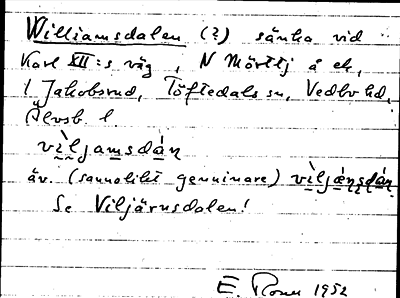 Williamsdalen (?) sänka vid
Karl XII:s väg, N Mörttj å ek,
1 Jakobsrud, Töftedals sn, Vedbo hd,
Älvsb. l.
vìljamsdán
äv. (sannolikt genuinare) vìljánsdán
Se Viljärnsdalen!
E. 1952